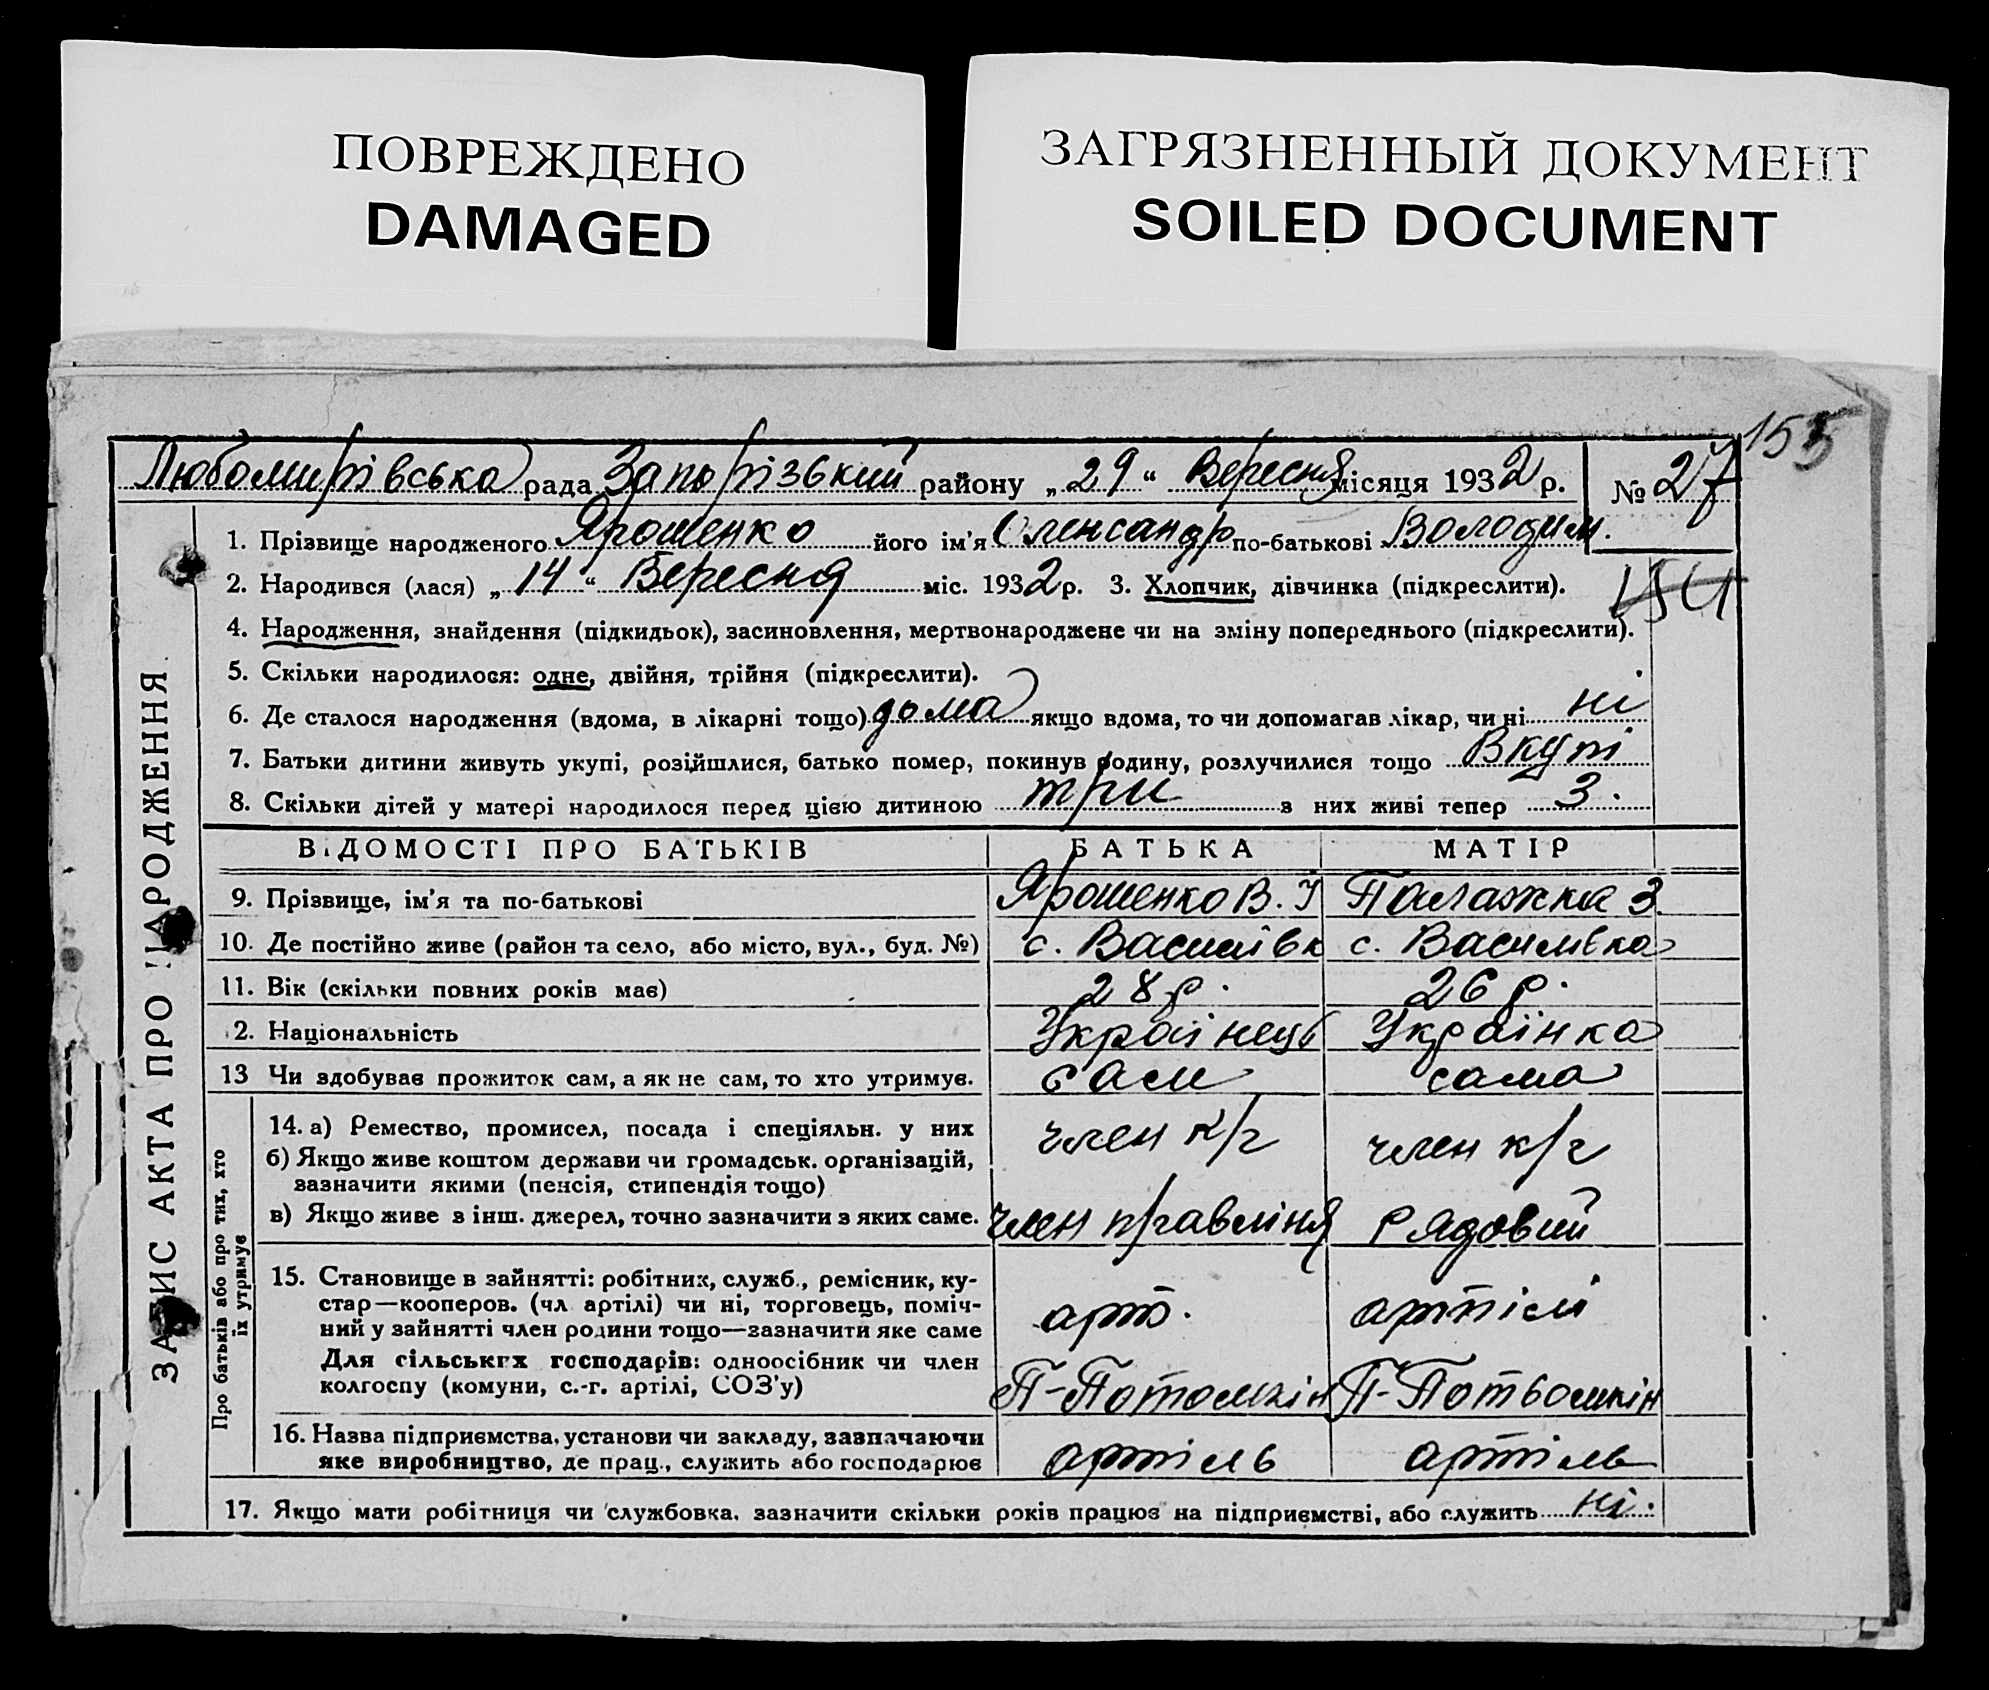 ПОВРЕЖДЕНО
DAMAGED
ЗАГРЯЗНЕННЫЙ ДОКУМЕНТ
SOILED DOCUMENT
155
Любомирівська рада Запорізький району „29“ Вересня місяця 1932 р. № 27
1. Прізвище народженого Ярошенко його ім'я Олександр по-батькові Володим.
2. Народився (лася) „14“ Вересня міс. 1932 р. 3. Хлопчик, дівчинка (підкреслити).
154
4. Народження, знайдення (підкидьок), засиновлення, мертвонароджене чи на зміну попереднього (підкреслити).
5. Скільки народилося: одне, двійня, трійня (підкреслити).
6. Де сталося народження (вдома, в лікарні тощо) дома якщо вдома, то чи допомагав лікар, чи ні ні
7. Батьки дитини живуть укупі, розійшлися, батько помер, покинув родину, розлучилися тощо Вкупі
8. Скільки дітей у матері народилося перед цією дитиною три з них живі тепер 3.
ЗАПИС АКТА ПРО НАРОДЖЕННЯ
ВІДОМОСТІ ПРО БАТЬКІВ БАТЬКА МАТІР
9. Прізвище, ім'я та по-батькові Ярошенко В. І Палажка З.
10. Де постійно живе (район та село, або місто, вул., буд. №) с. Василівк с. Василівка
11. Вік (скільки повних років має) 28 р. 26 р.
2. Національність Українець Українка
13 Чи здобуває прожиток сам, а як не сам, то хто утримує. сам сама
Про батьків або про тих, хто
їх утримує
14. а) Ремество, промисел, посада і спеціяльн. у них член к/г член к/г
б) Якщо живе коштом держави чи громадськ. організацій,
зазначити якими (пенсія, стипендія тощо)
в) Якщо живе з інш. джерел, точно зазначити з яких саме. член правліня рядовий
15. Становище в зайнятті: робітник, служб., ремісник, ку-
стар—кооперов. (чл. артілі) чи ні, торговець, поміч- арт. артілі
ний у зайнятті член родини тощо—зазначити яке саме
Для сільських господарів: одноосібник чи член
колгоспу (комуни, с.-г. артілі, СОЗ'у) П-Потомкін П-Потьомкін
16. Назва підприємства, установи чи закладу, зазначаючи
яке виробництво, де прац., служить або господарює артіль артіль
17. Якщо мати робітниця чи службовка, зазначити скільки років працює на підприємстві, або служить ні.